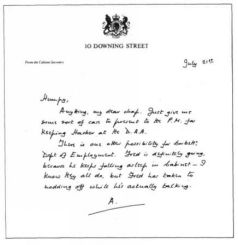 10 DOWNING STREET
From the Cabinet Secretary
July 31st
Humpy,
Anything, my dear chap. Just give me
some sort of case to present to the P.M. for
keeping Hacker at the D.A.A.
There is one other possibility for Corbett:
Dept of Employment. Fred is definitely going,
because he keeps falling asleep in Cabinet - I
know they all do, but Fred has taken to
nodding off while he's actually talking.
A.